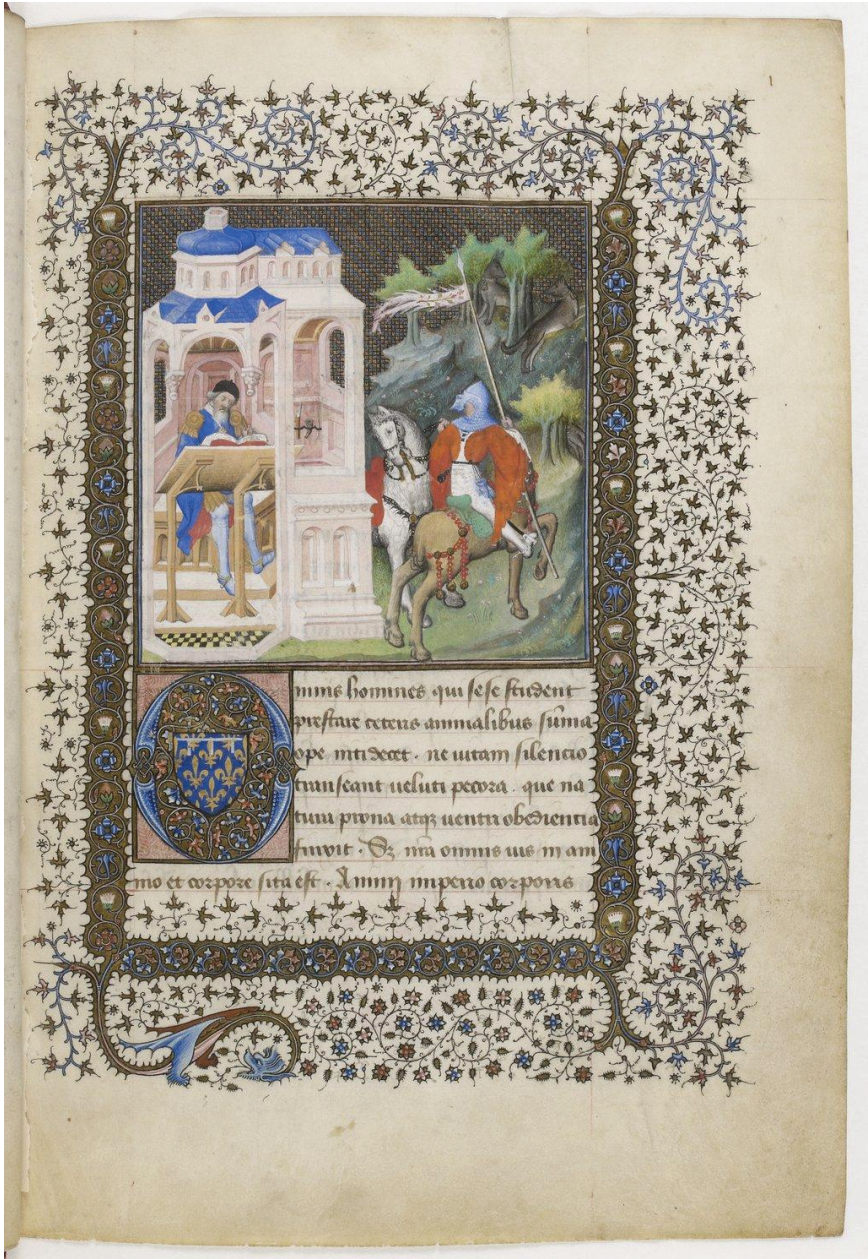 Omnis homines qui sese student
prestare ceteris animalibus suma
ope niti decet . ne uitam silencio
transeant ueluti pecora . que na
tura prona atqz uentri obediencia
finxit . Sz nra omnis uis in ani
mo et corpore sita est . Animi imperio corporis